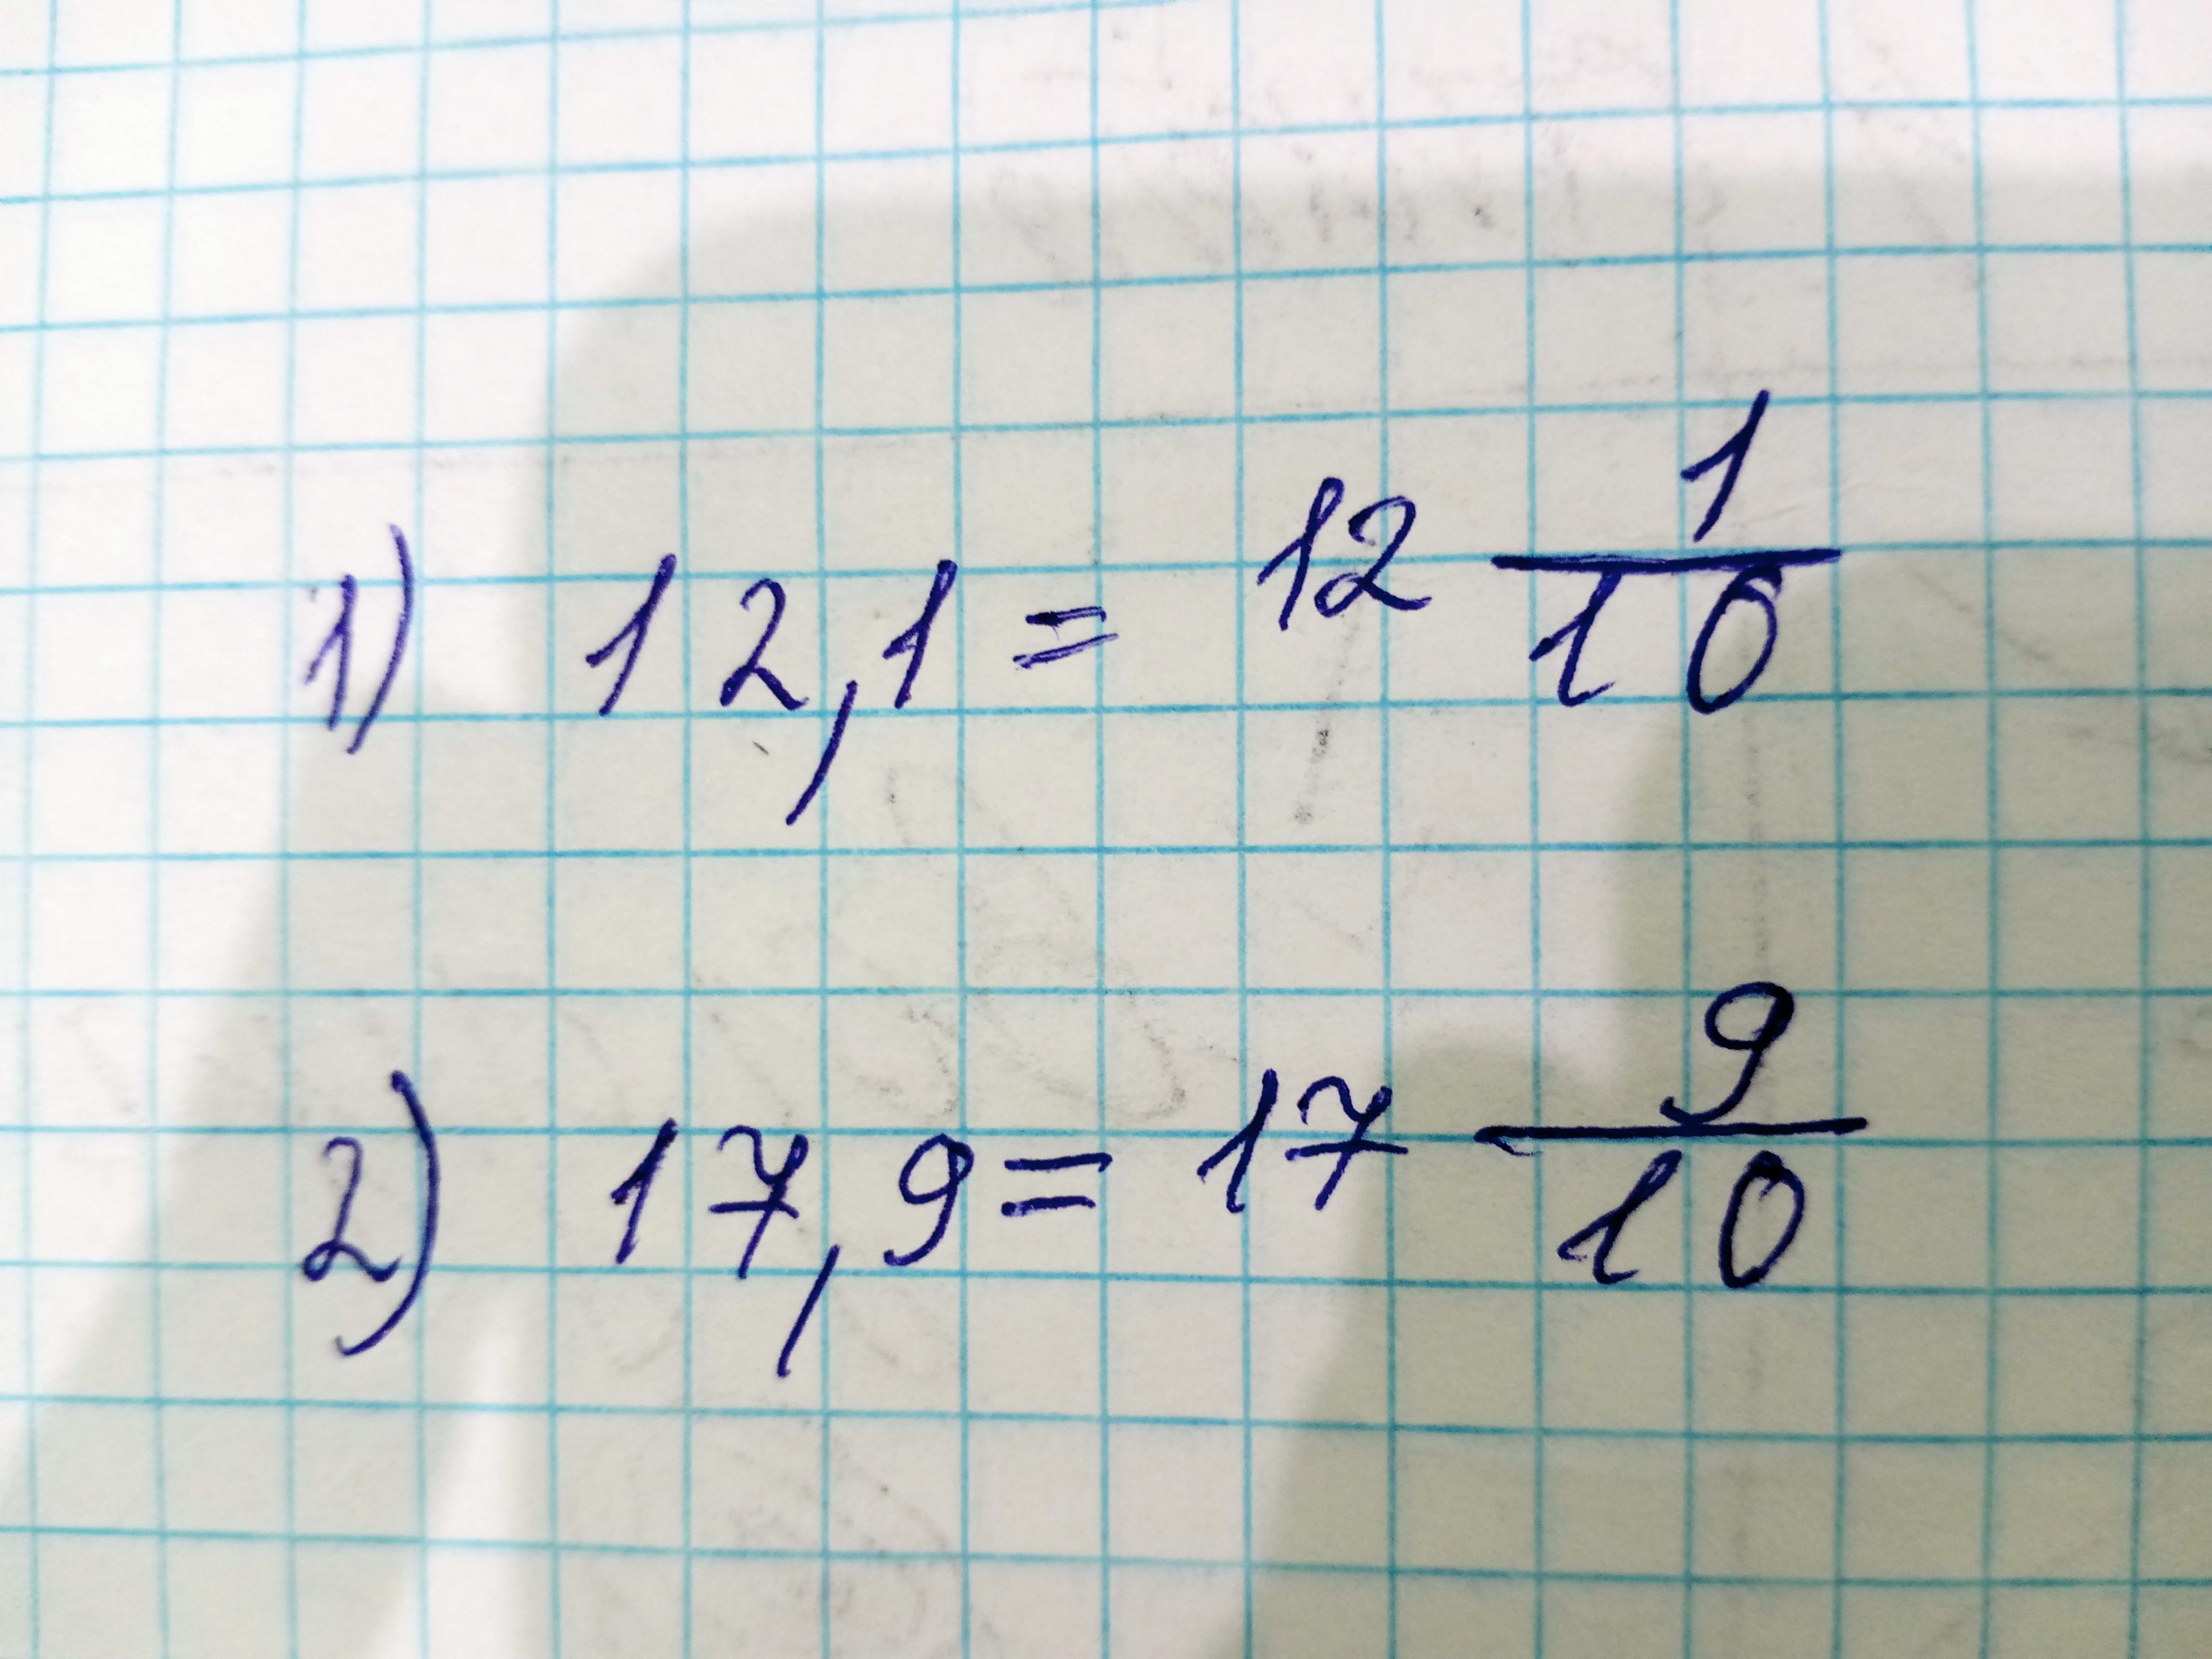 1) 12,1 = 12 1/10
2) 17,9 = 17 9/10